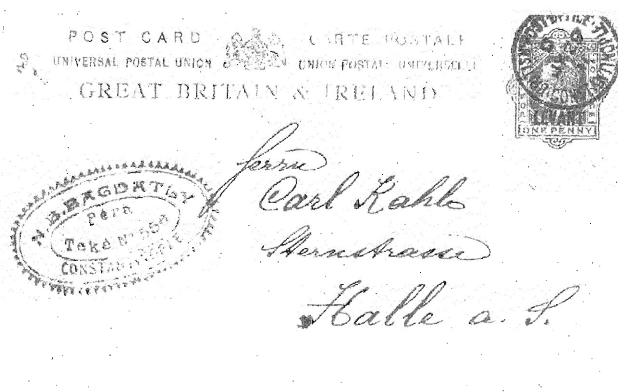 POST CARD
CARTE POSTALE
UNIVERSAL POSTAL UNION
UNION POSTALE UNIVERSELLE
GREAT BRITAIN & IRELAND
BRITISH POST OFFICE
LEVANT
ONE PENNY
N. B. BAGDATLY
Pera
Teké
CONSTANTINOPLE
Herrn
Carl Kahlo
Sternstrasse
Halle a. S.